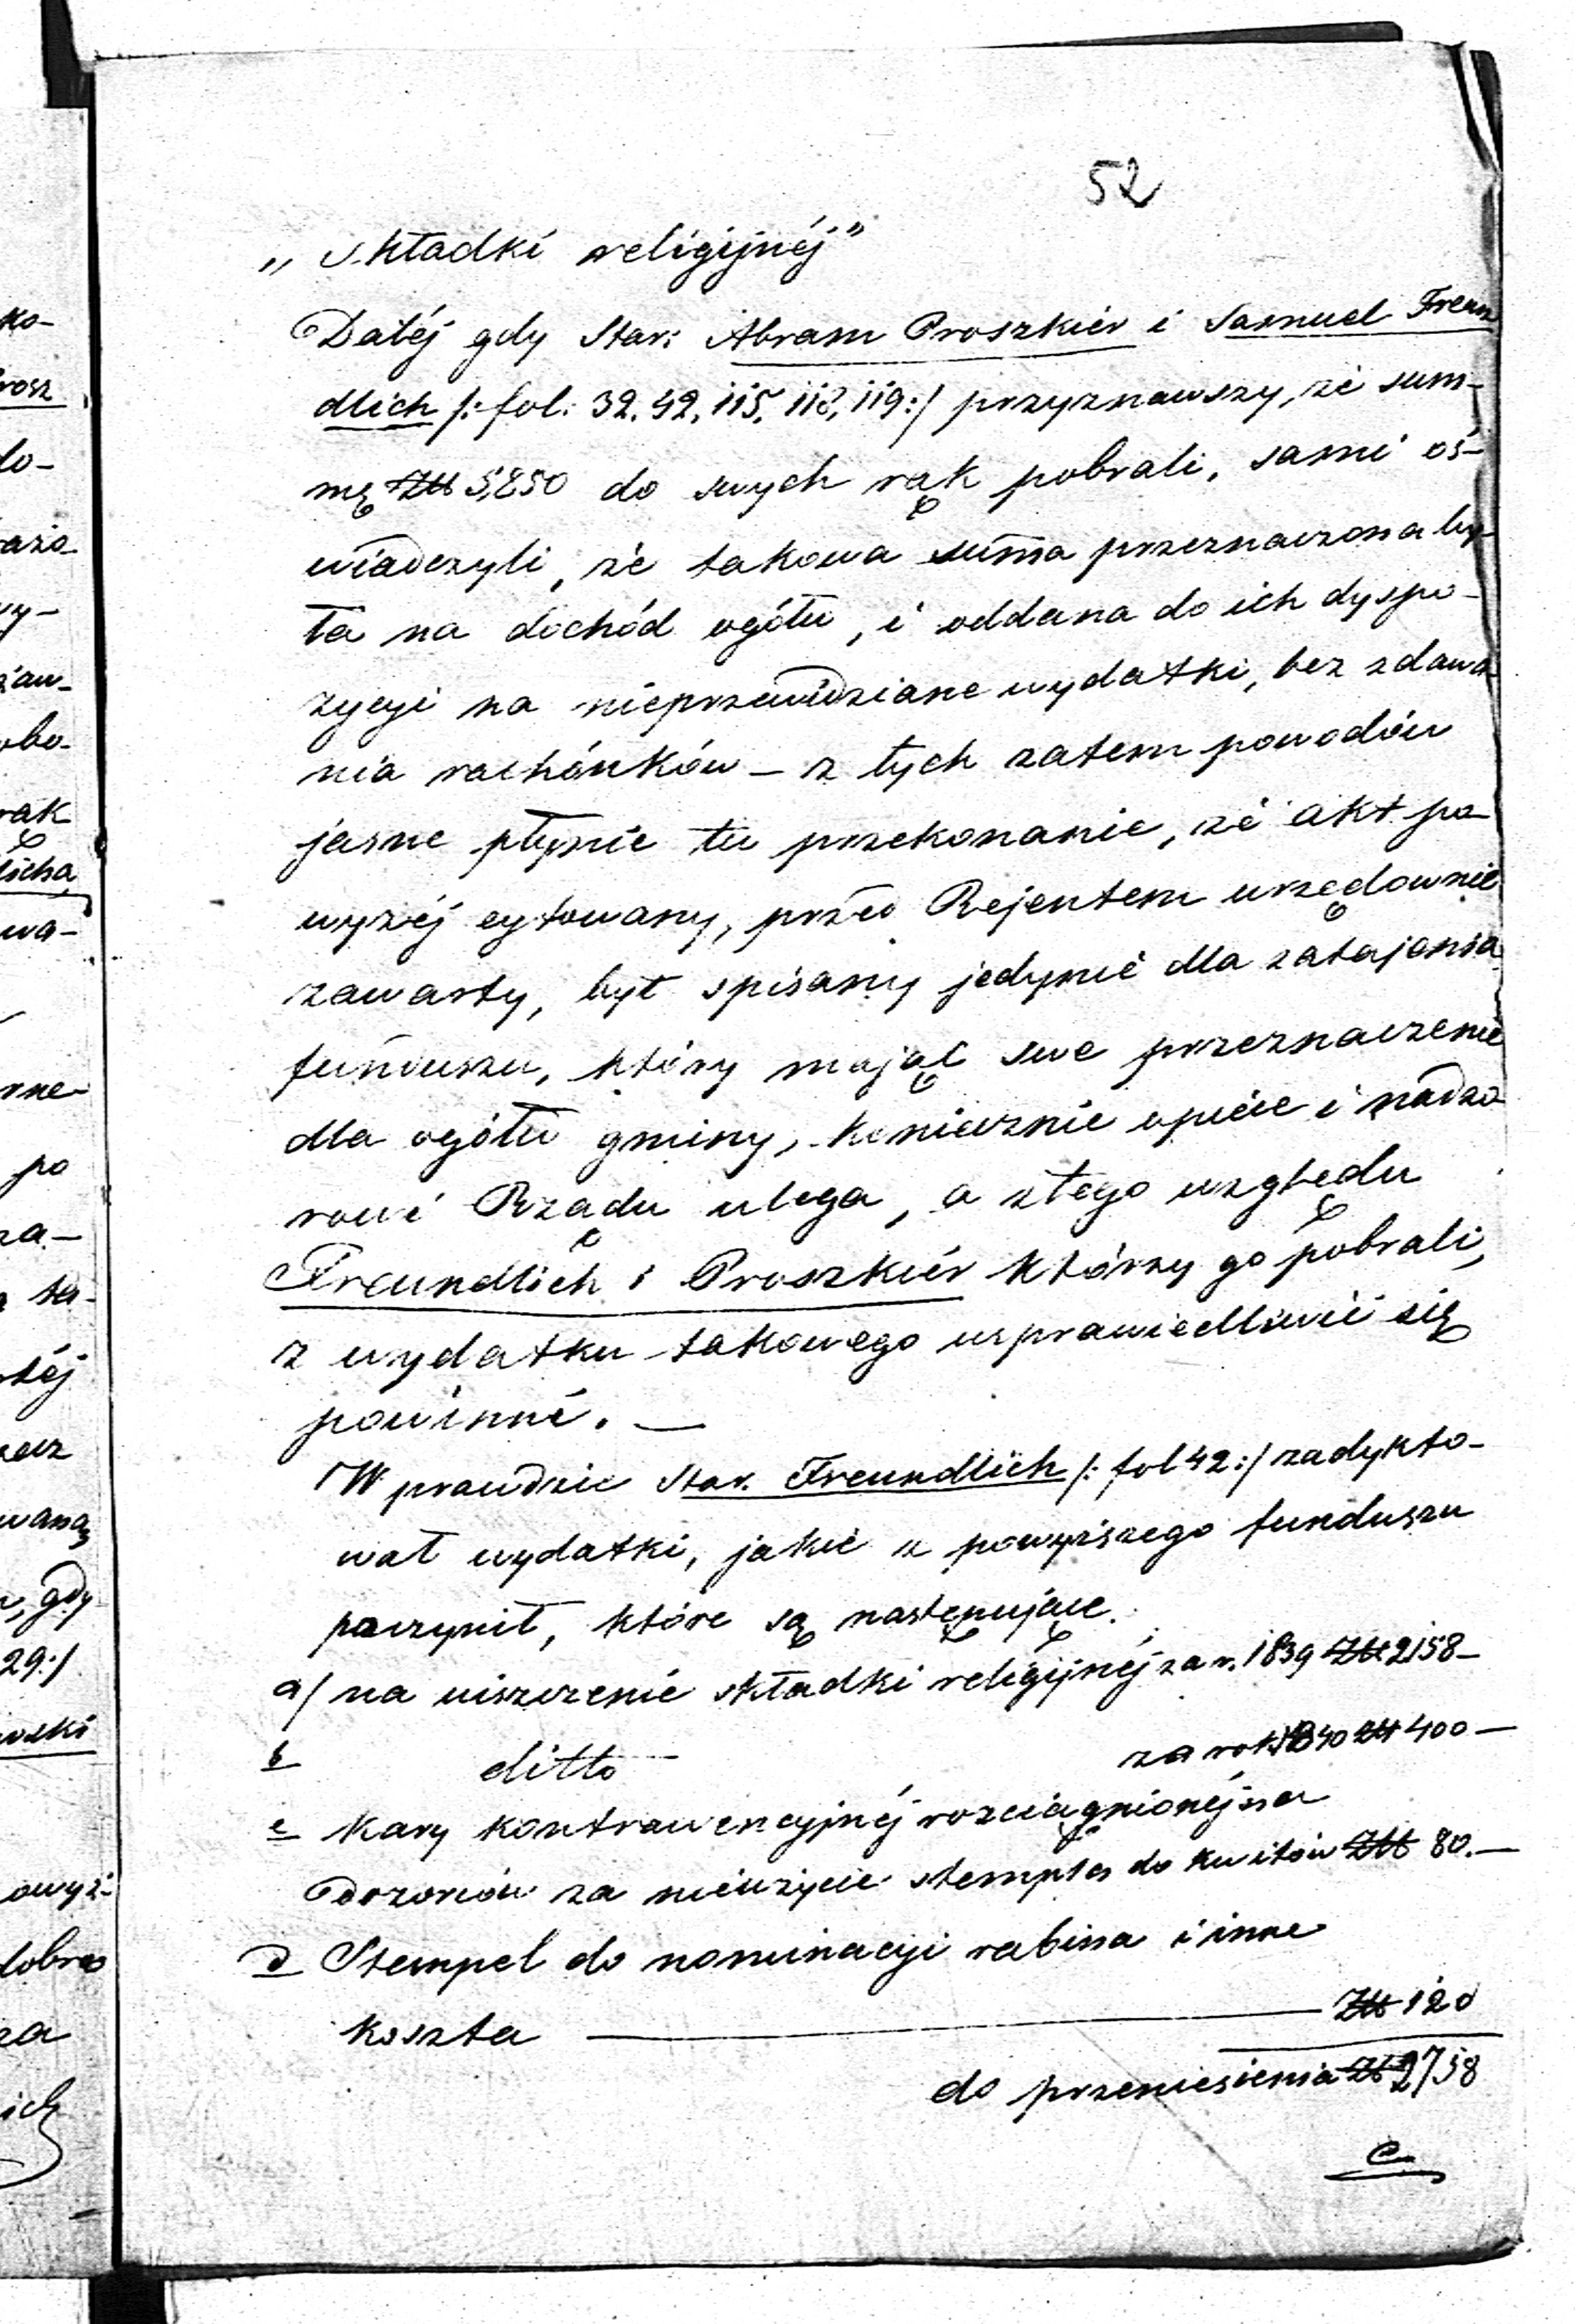 52
„Składki religijnéj"
Daléj gdy Star: Abram Proszkier i Samuel Freun
dlich /: fol: 32. 42, 115, 118, 119 :/ przyznawszy, że sum-
mę Złł 5,250 do swych rąk pobrali, sami oś-
wiadczyli, że takowa suma przeznaczona by-
ła na dochód ogółu, i oddana do ich dyspo-
zycyi na nieprzewidziane wydatki, bez zdawa-
nia rachónków – z tych zatem powodów
jasne płynie tu przekonanie, że akt po-
wyżéj cytowany, przed Rejentem urzędownie
zawarty, był spisany jedynie dla zatajenia
funduszu, który mając swe przeznaczenie
dla ogółu gminy, koniecznie opiece i nadzo-
rowi Rządu ulega, a ztego względu
Freundlich i Proszkier którzy go pobrali,
z wydatku takowego usprawiedliwić się
powinni. —
W prawdzie Star. Freundlich /: fol 42 :/ zadykto-
wał wydatki, jakie z powyższego funduszu
poczynił, które są następujące.
a/ na uiszczenie składki religijnéj za r. 1839 Złł 2158 –
b ditto za rok 1840 Złł 400 —
c kary kontrawencyjnéj rozciągnionéj na
Dozorców za nieużycie stempla do kwitów Złł 80. —
d Stempel do nominacyi rabina i inne
koszta — Złł 120
do przeniesienia Zł 2758
e
ko-
rosz
do-
wy-
obo-
rak
licha
wa-
po
za-
ta-
gdy
29:/
wski
owyż-
dobro
za
ich